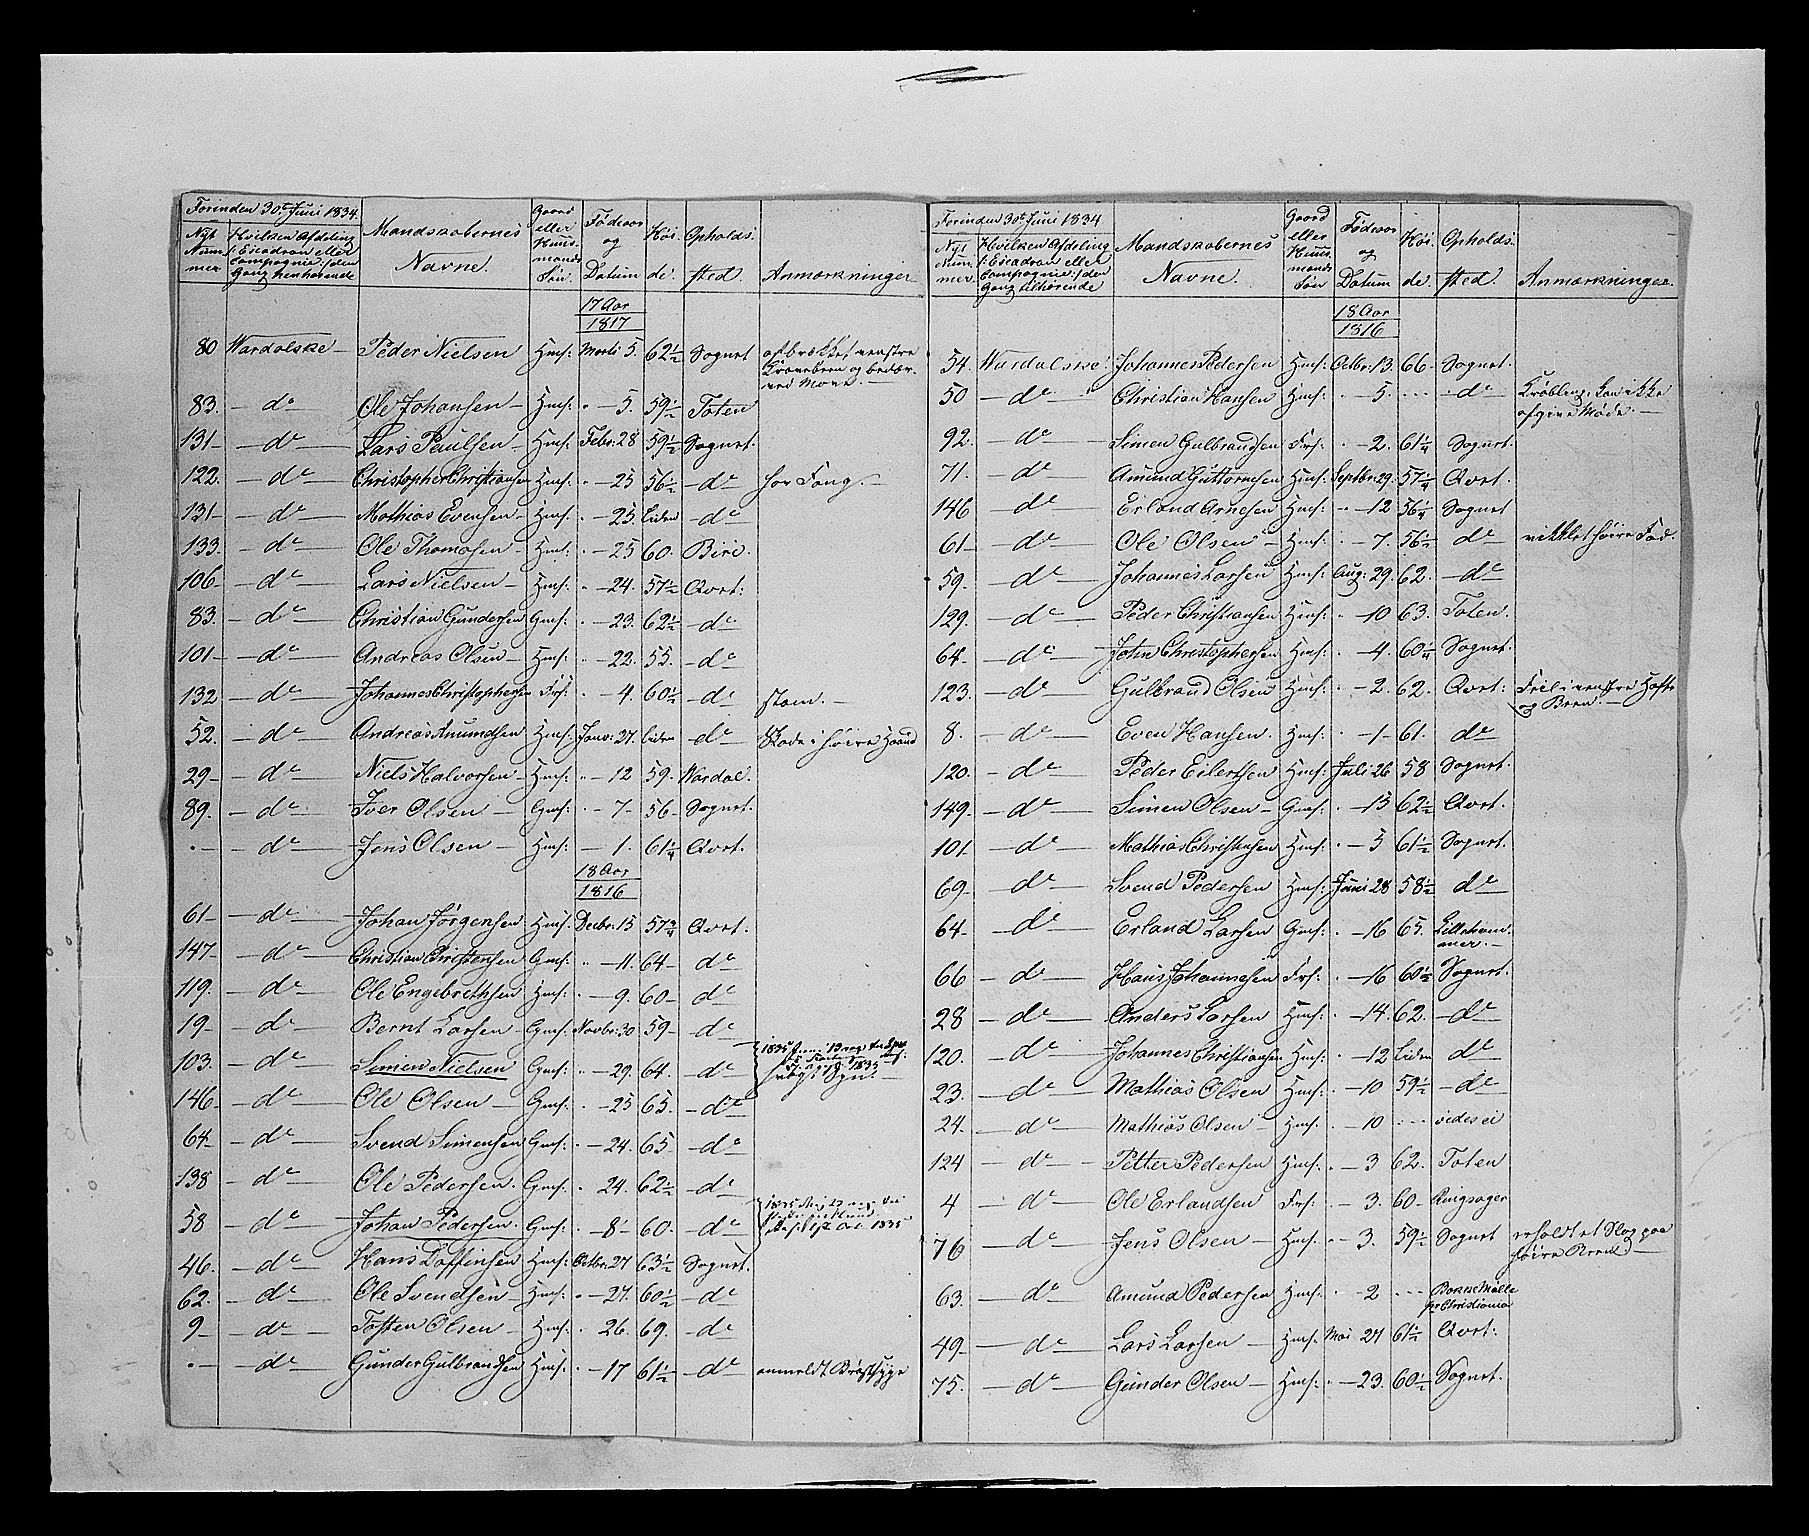 Forinden 30t Juni 1834.
Nyt Nummer
Hvilken Afdeling /: Escadron eller Compagnie :/ den Gang henhørende
Mandskabernes Navne.
Gaard eller Huusmands Søn
Fødeaar og Datum
Høide.
Opholdssted.
Anmærkninger
17 Aar
1817
80 Wardalske – Peder Nielsen Hmf: Marti 5. 62½ Sognet afbrækket venstre Kravebeen og
83. – do – Ole Johansen – Hmf: " – 5. 59½ Toten
131 – do – Lars Paulsen – Hmf: Febr: 28 59½ Sognet.
122. – do – Christopher Christiansen Hmf: " – 25 56½ – do –
131 – do – Mathias Evensen – Hmf: " – 25. liden – do –
133. – do – Ole Thomasen – Hmf: " – 25 60. Biri.
106. – do – Lars Nielsen – Hmf: " – 24. 57½ Qvort:
83. – do – Christian Gundersen Gmf: " – 23. 62½ – do
101 – do – Andreas Olsen – Hmf: " – 22. 55. – do
132 – do – Johannes Christophersen Frf: " – 4. 60½ – do stam. –
52. – do – Andreas Amundsen Hmf: Janv: 27. liden – do – Skade i høire Haand
29 – do – Niels Halvorsen – Hmf: " – 12 59. Wardal.
89. – do – Iver Olsen – Gmf: " – 7. 56 – Sognet.
. – do – Jens Olsen – Hmf: – 1. 61¼ Qvort.
18 Aar
1816
61 – do – Johan Jørgensen Hmf. Decbr: 15 57¾ Qvort.
147 – do – Christian Christensen Gmf: " – 11. 64 – do
119. – do – Ole Engebrethsen Hmf: " – 9. 60 – do
19 – do – Bernt Larsen – Gmf: Novbr: 30 59 – do
103. – do – Simen Nielsen Gmf: " – 29. 64. – do
146 – do – Ole Olsen – Gmf: " – 25 65. – do
64 – do – Svend Simensen Gmf: " – 24. 65 – do
138 – do – Ole Pedersen. Gmf: " 24. 62½ – do
58 – do – Johan Pedersen. Gmf: " – 8. 60. – do 1835
46. – do – Hans Daffinsen Hmf: Octbr: 27 63½ Sognet.
62. – do – Ole Svendsen – Hmf: " – 27. 60½ – do
9 – do – Tosten Olsen – Hmf: " 26. 69. – do
. – do – Gunder Gulbrandsen Hmf: " – 17 61½ – do – anmeldt Brøstsyge
Forinden 30t Juni 1834
Nyt Nummer.
Hvilken Afdeling /: Escadron eller Compagnie :/ den Gang tilhørende
Mandskabernes Navne.
Gaard eller Huusmands Søn
Fødeaar og Datum
Høide.
Opholdssted.
Anmærkninger.
18 Aar
1816
54. Wardalske. Johannes Pedersen Hmf: Octbr: 13. 66 – Sognet.
50 – do – Christian Hansen Hmf: " – 5. – do – Krøbling, kan ikke afgive Møde. –
92. – do – Simen Gulbrandsen Frf: " – 2. 61¼ Sognet.
71. – do – Amund Guttormsen Hmf: Septbr: 29. 57¼ Qvort.
146 – do – Erland Arnesen Hmf: " – 12 56¼ Sognet
61 – do – Ole Olsen – Hmf: " – 7. 56½ do – vikklet høire Fod.
59. – do – Johannes Larsen Hmf: Aug: 29. 62. – do
129. – do – Peder Christiansen Hmf: " – 10 63. Toten.
64. – do – John Christophersen Hmf: " – 4. 60¼ Sognet.
123. – do Gulbrand Olsen Hmf: " – 2. 62. Qvort: Feil i venstre Hofte og Been. –
8. – do – Even Hansen. Hmf: " – 1 – 61. do
120. – do – Peder Eilertsen Hmf: Juli 26 58 Sognet.
149. – do – Simen Olsen – Gmf: " – 15 62½ Qvort.
101 – do – Mathias Christensen Hmf: " – 5 61½ Sognet.
69 – do – Svend Pedersen Hmf: Juni 28 58½ do
64. – do – Erland Larsen Gmf: " – 16 65. Lillehammer. –
66 – do – Hans Johannesen Frf: " – 16 60½ Sognet.
28 – do – Anders Larsen Hmf: " – 14. 62. – do –
120. – do – Johannes Christiansen Hmf: " – 12 Liden do
23. – do – Mathias Olsen Hmf: " – 10 59½ – do –
24. – do – Mathias Olsen – Hmf: " – 10 vides ei
124 – do – Petter Pedersen Hmf: " – 3 62. Toten
4 – do – Ole Erlandsen Frf: " – 3. 60 Ringsager
76 – do – Jens Olsen – Hmf: – 3. 59½ Sognet erholdt et Slag paa høire Been –
63. – do – Amund Pedersen Hmf: " – 2 Mølle pr Christiania
49. – do – Lars Larsen – Hmf: Mai 27 61½ Qvort:
75. – do – Gunder Olsen – Hmf: " – 23. 60½ Sognet.